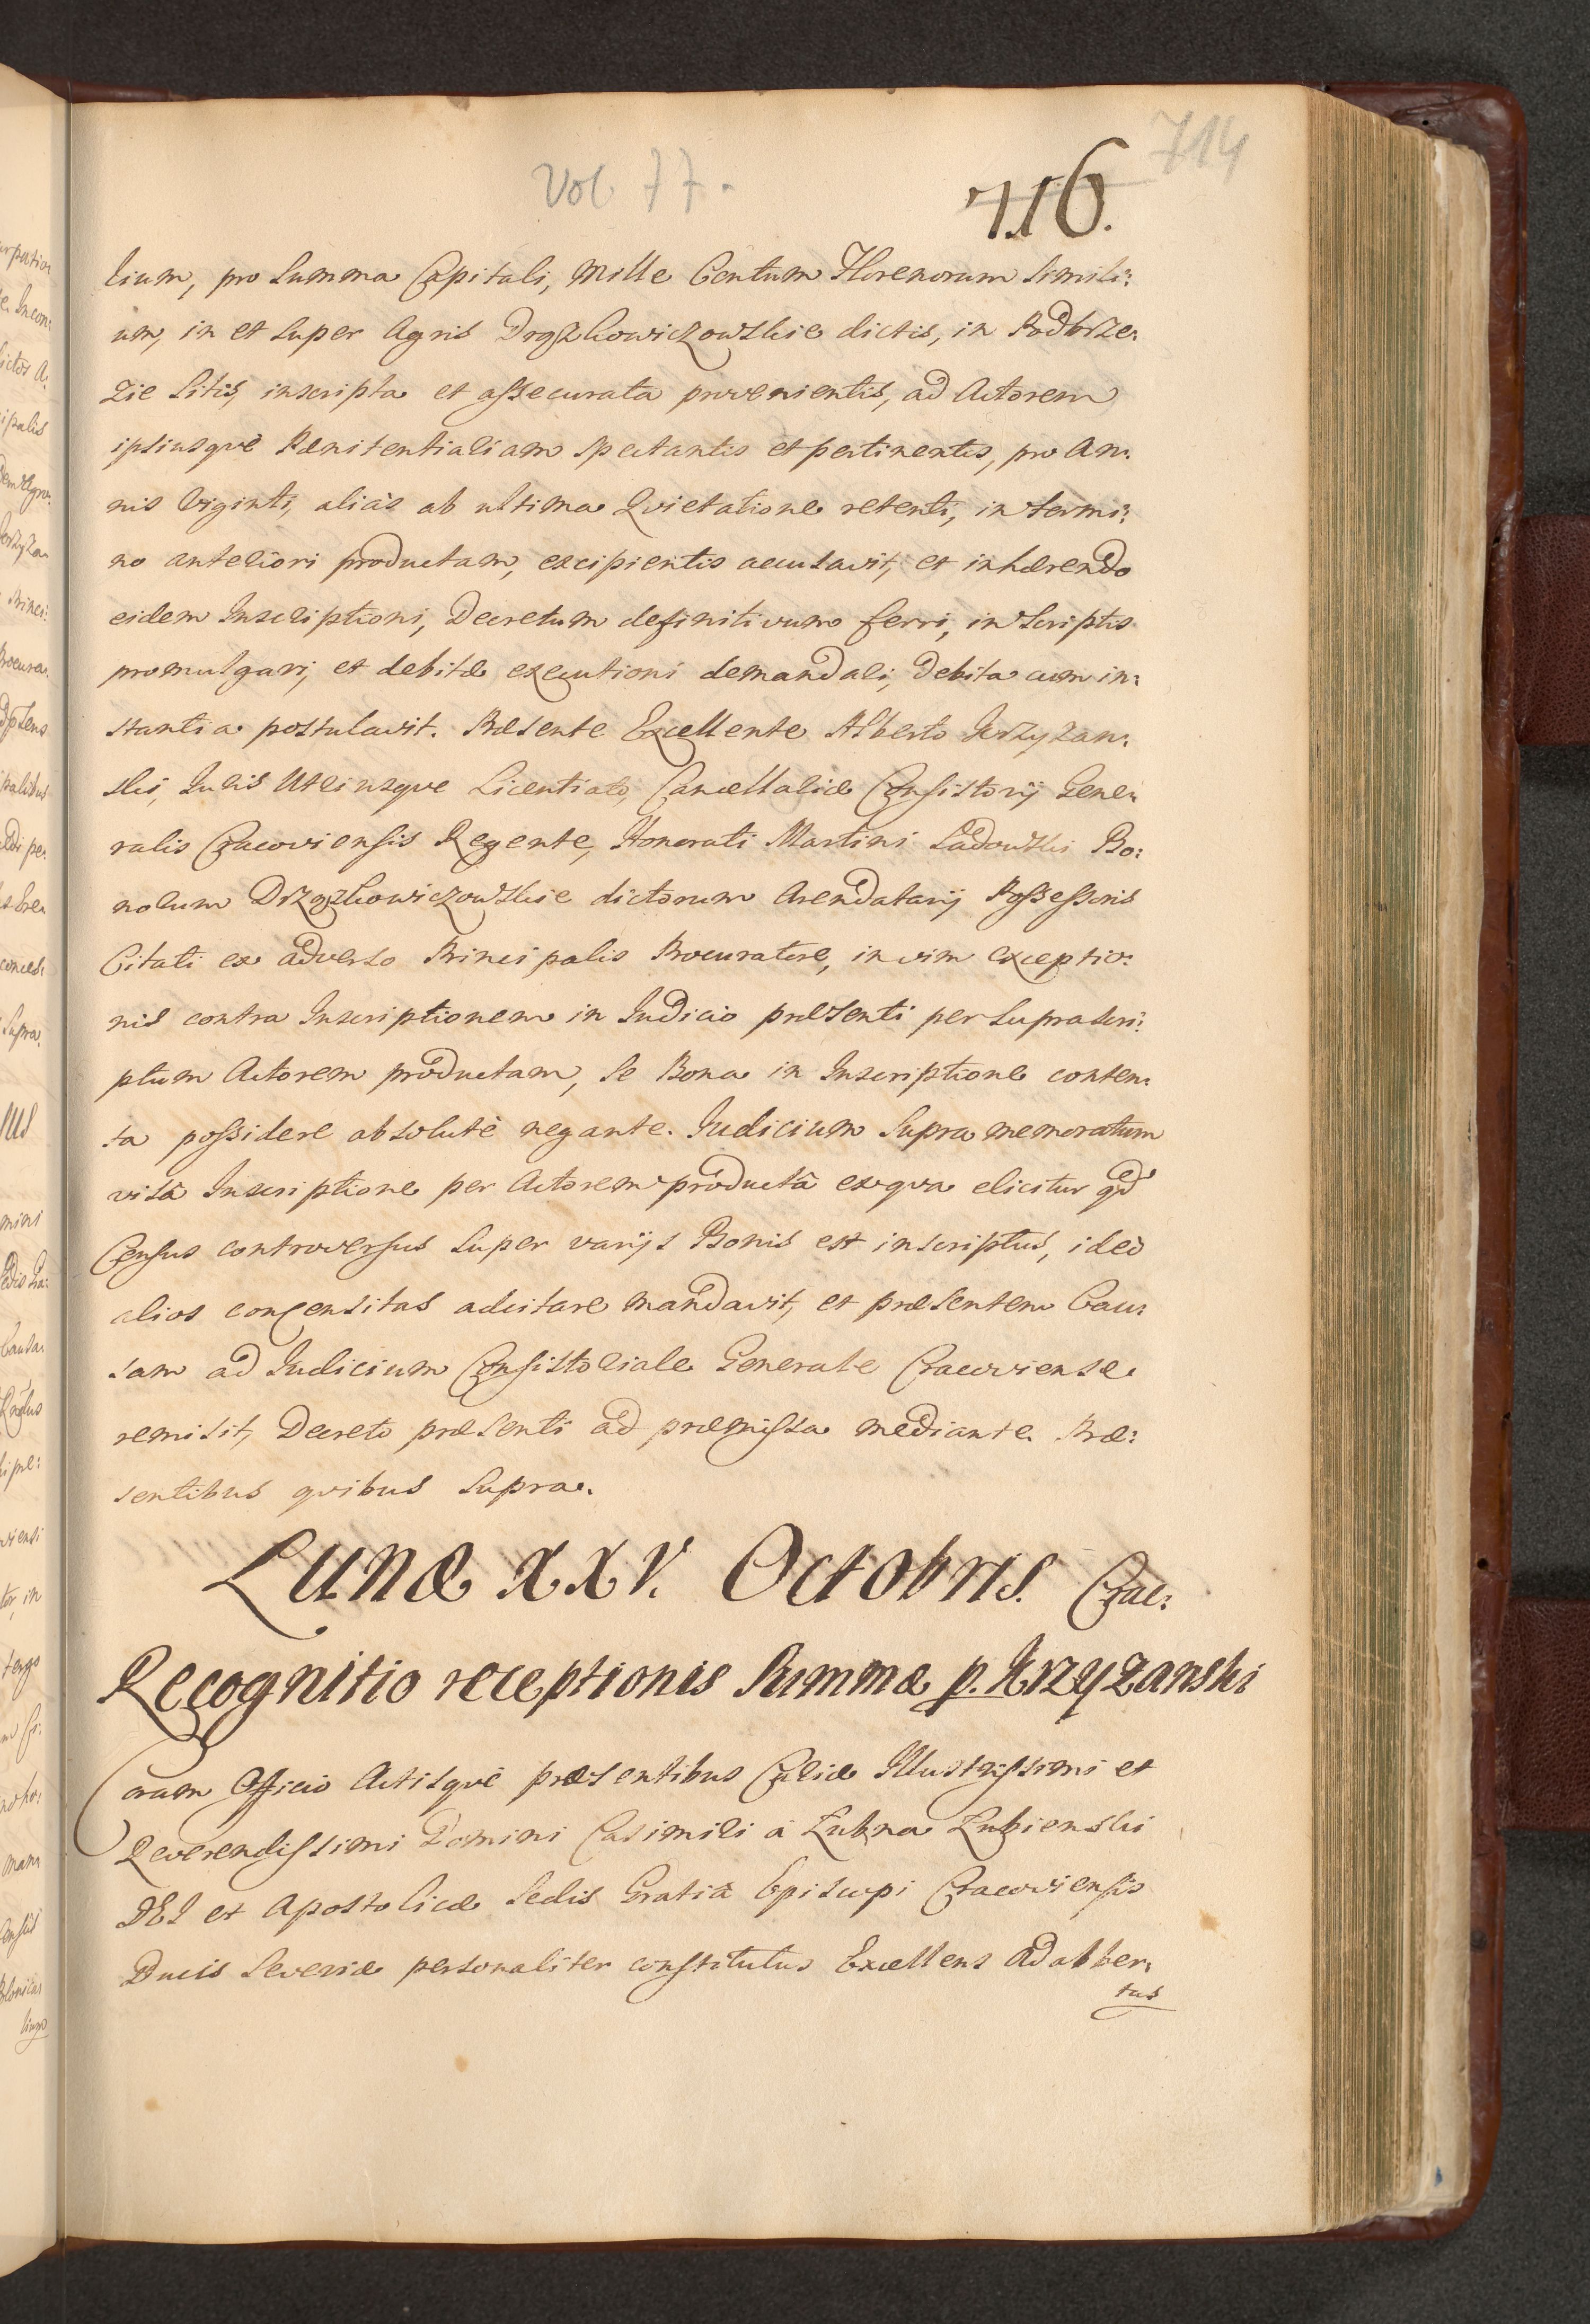 Vol 77.
714
716.
lium, pro Summa Capitali, Mille Centum Florenorum Simili:
um, in et Super Agris Drozkowiczowskie dictis, in Podbrze:
zie Sitis, inscripta et assecurata provenientis, ad Actorem
ipsiusque Pænitentialiam Spectantis et pertinentis, pro An:
nis Viginti, alias ab ultima Quietatione retenti, in termi:
no anteriori productam, excipientis accusavit, et inhærendo
eidem Inscriptioni, Decretum definitivum ferri, in Scriptis
promulgari, et debitæ executioni demandari, debita cum in:
stantia postulavit. Præsente Excellente Alberto Krzyżan:
ski, Juris Utriusque Licentiato, Cancellariæ Consistorij Gene:
ralis Cracoviensis Regente, Honorati Martini Ladowski Bo:
norum Drzozkowiczowskie dictorum Arendatarij Possessoris
Citati ex adverso Principalis Procuratore, in vim exceptio:
nis contra Inscriptionem in Judicio præsenti per Suprascri:
ptum Actorem productam, Se Bona in Inscriptione conten:
ta possidere absolutè negante. Judicium Supra memoratum
visâ Inscriptione per Actorem productâ ex qva elicitur qd
Census controversus Super varijs Bonis est inscriptus, ideò
alios concensitas adcitare mandavit, et præsentem Cau:
sam ad Judicium Consistoriale Generale Cracoviense
remisit, Decreto præsenti ad præmissa mediante. Præ:
sentibus qvibus Supra.
Lunæ XXV. Octobris. Crac:
Recognitio receptionis Summæ p. Krzyżanski
Coram Officio Actisque præsentibus Curiæ Illustrissimi et
Reverendissimi Domini Casimiri à Łubna Łubienski
DEI et Apostolicæ Sedis Gratiâ Episcopi Cracoviensis
Ducis Severiæ personaliter constitutus Excellens Adalber:
tus